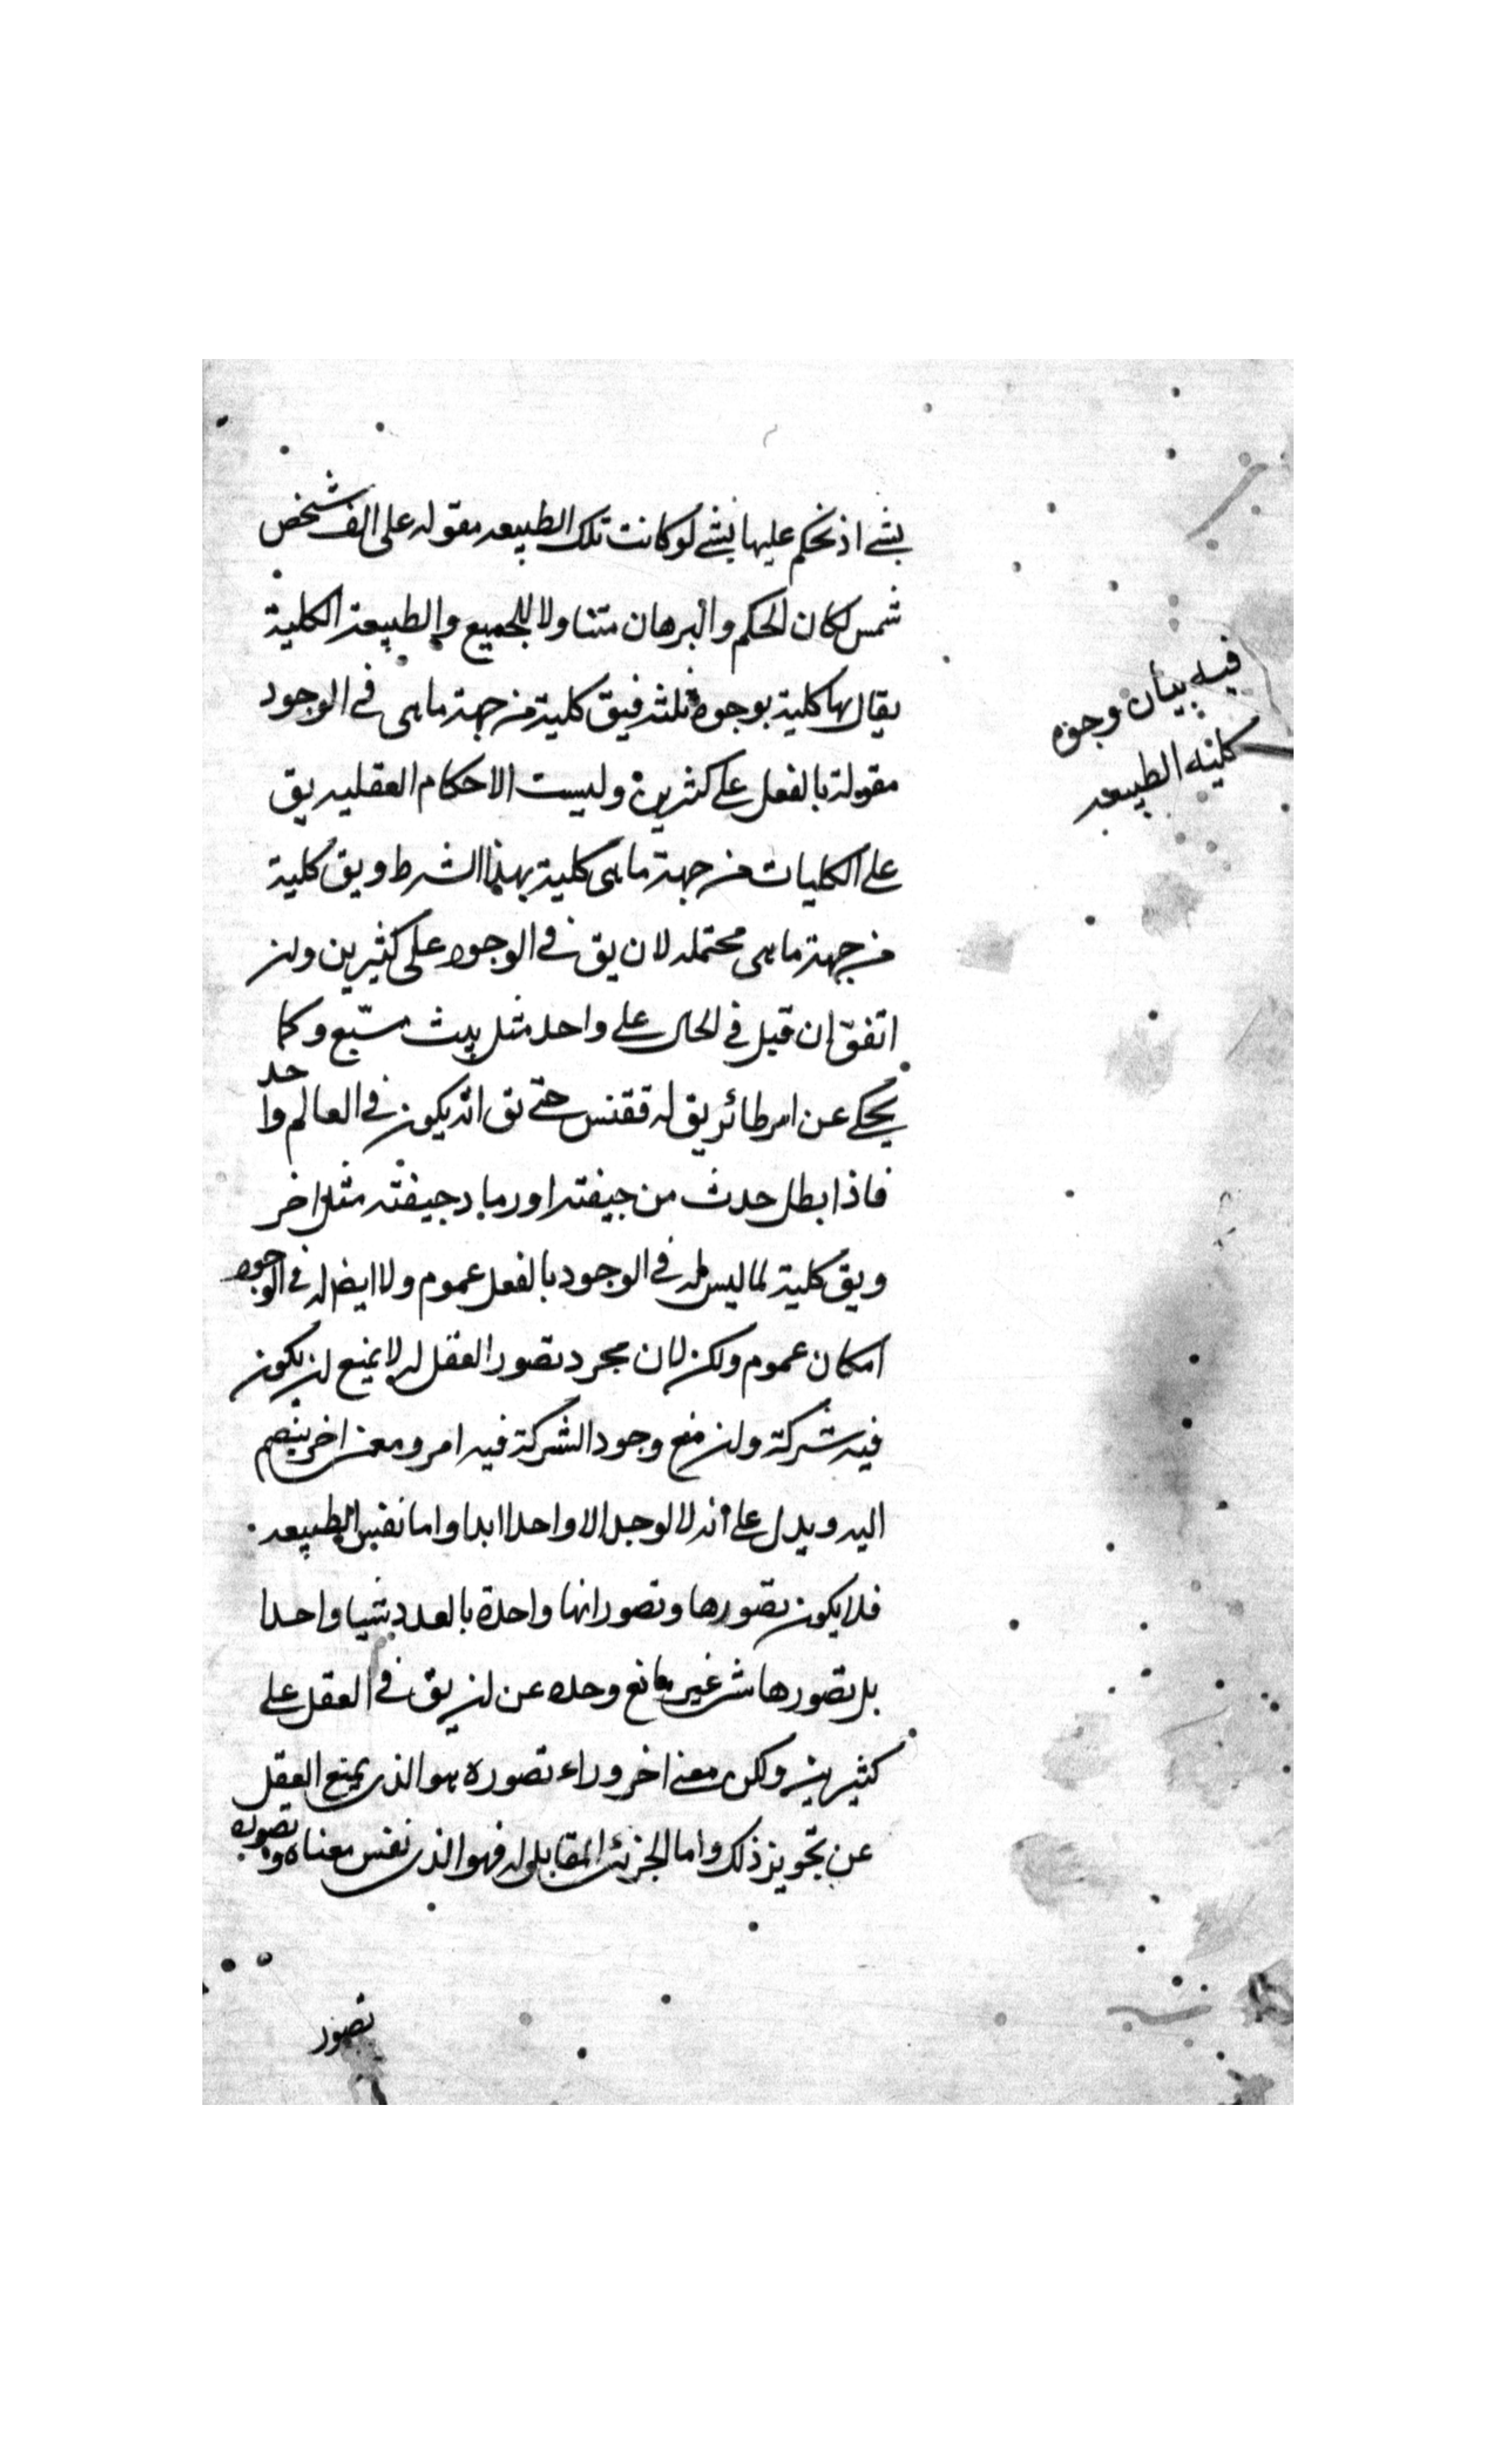 بشے اذ نحكم عليها بشے لو كانت تلك الطبيعه مقوله على الف شخص
شمس لكان الحكم والبرهان متناولا للجميع والطبيعة الكلية
يقال لها كلية بوجوه ثلثه فيق كلية من جهة ما هى فى الوجود
مقولة بالفعل على كثيرين وليست الاحكام العقليه يق
على الكليات من جهة ما هى كلية بهذا الشرط ويق كلية
من جهة ما هى محتمله لان يق فى الوجود على كثيرين وان
اتفق ان قيل فى الحال على واحد مثل بيت مسبع وكما
يحكى عن امر طائر يق له ققنس حتى يق انه يكون فى العالم واحد
فاذا بطل حدث من جيفته او رماد جيفته مثله اخر
ويق كلية لما ليس له فى الوجود بالفعل عموم ولا ايضا له فى الوجود
امكان عموم ولكن لان مجرد تصور العقل له لا يمنع ان يكون
فيه شركة وان منع وجود الشركة فيه امر ومعنى اخر ينضم
اليه ويدل على انه لا لوجد الا واحدا ابدا واما نفس الطبيعه
فلا يكون تصورها وتصور انها واحدة بالعدد شيا واحدا
بل تصورها شئ غير مانع وحده عن ان يق فى العقل على
كثيرين ولكن معنى اخر وراء تصوره هو الذى يمنع العقل
عن تجويز ذلك واما الجزئى المقابل له فهو الذى نفس معناه وتصوره
تصور
فيه بيان وجوه
كلية الطبيعه